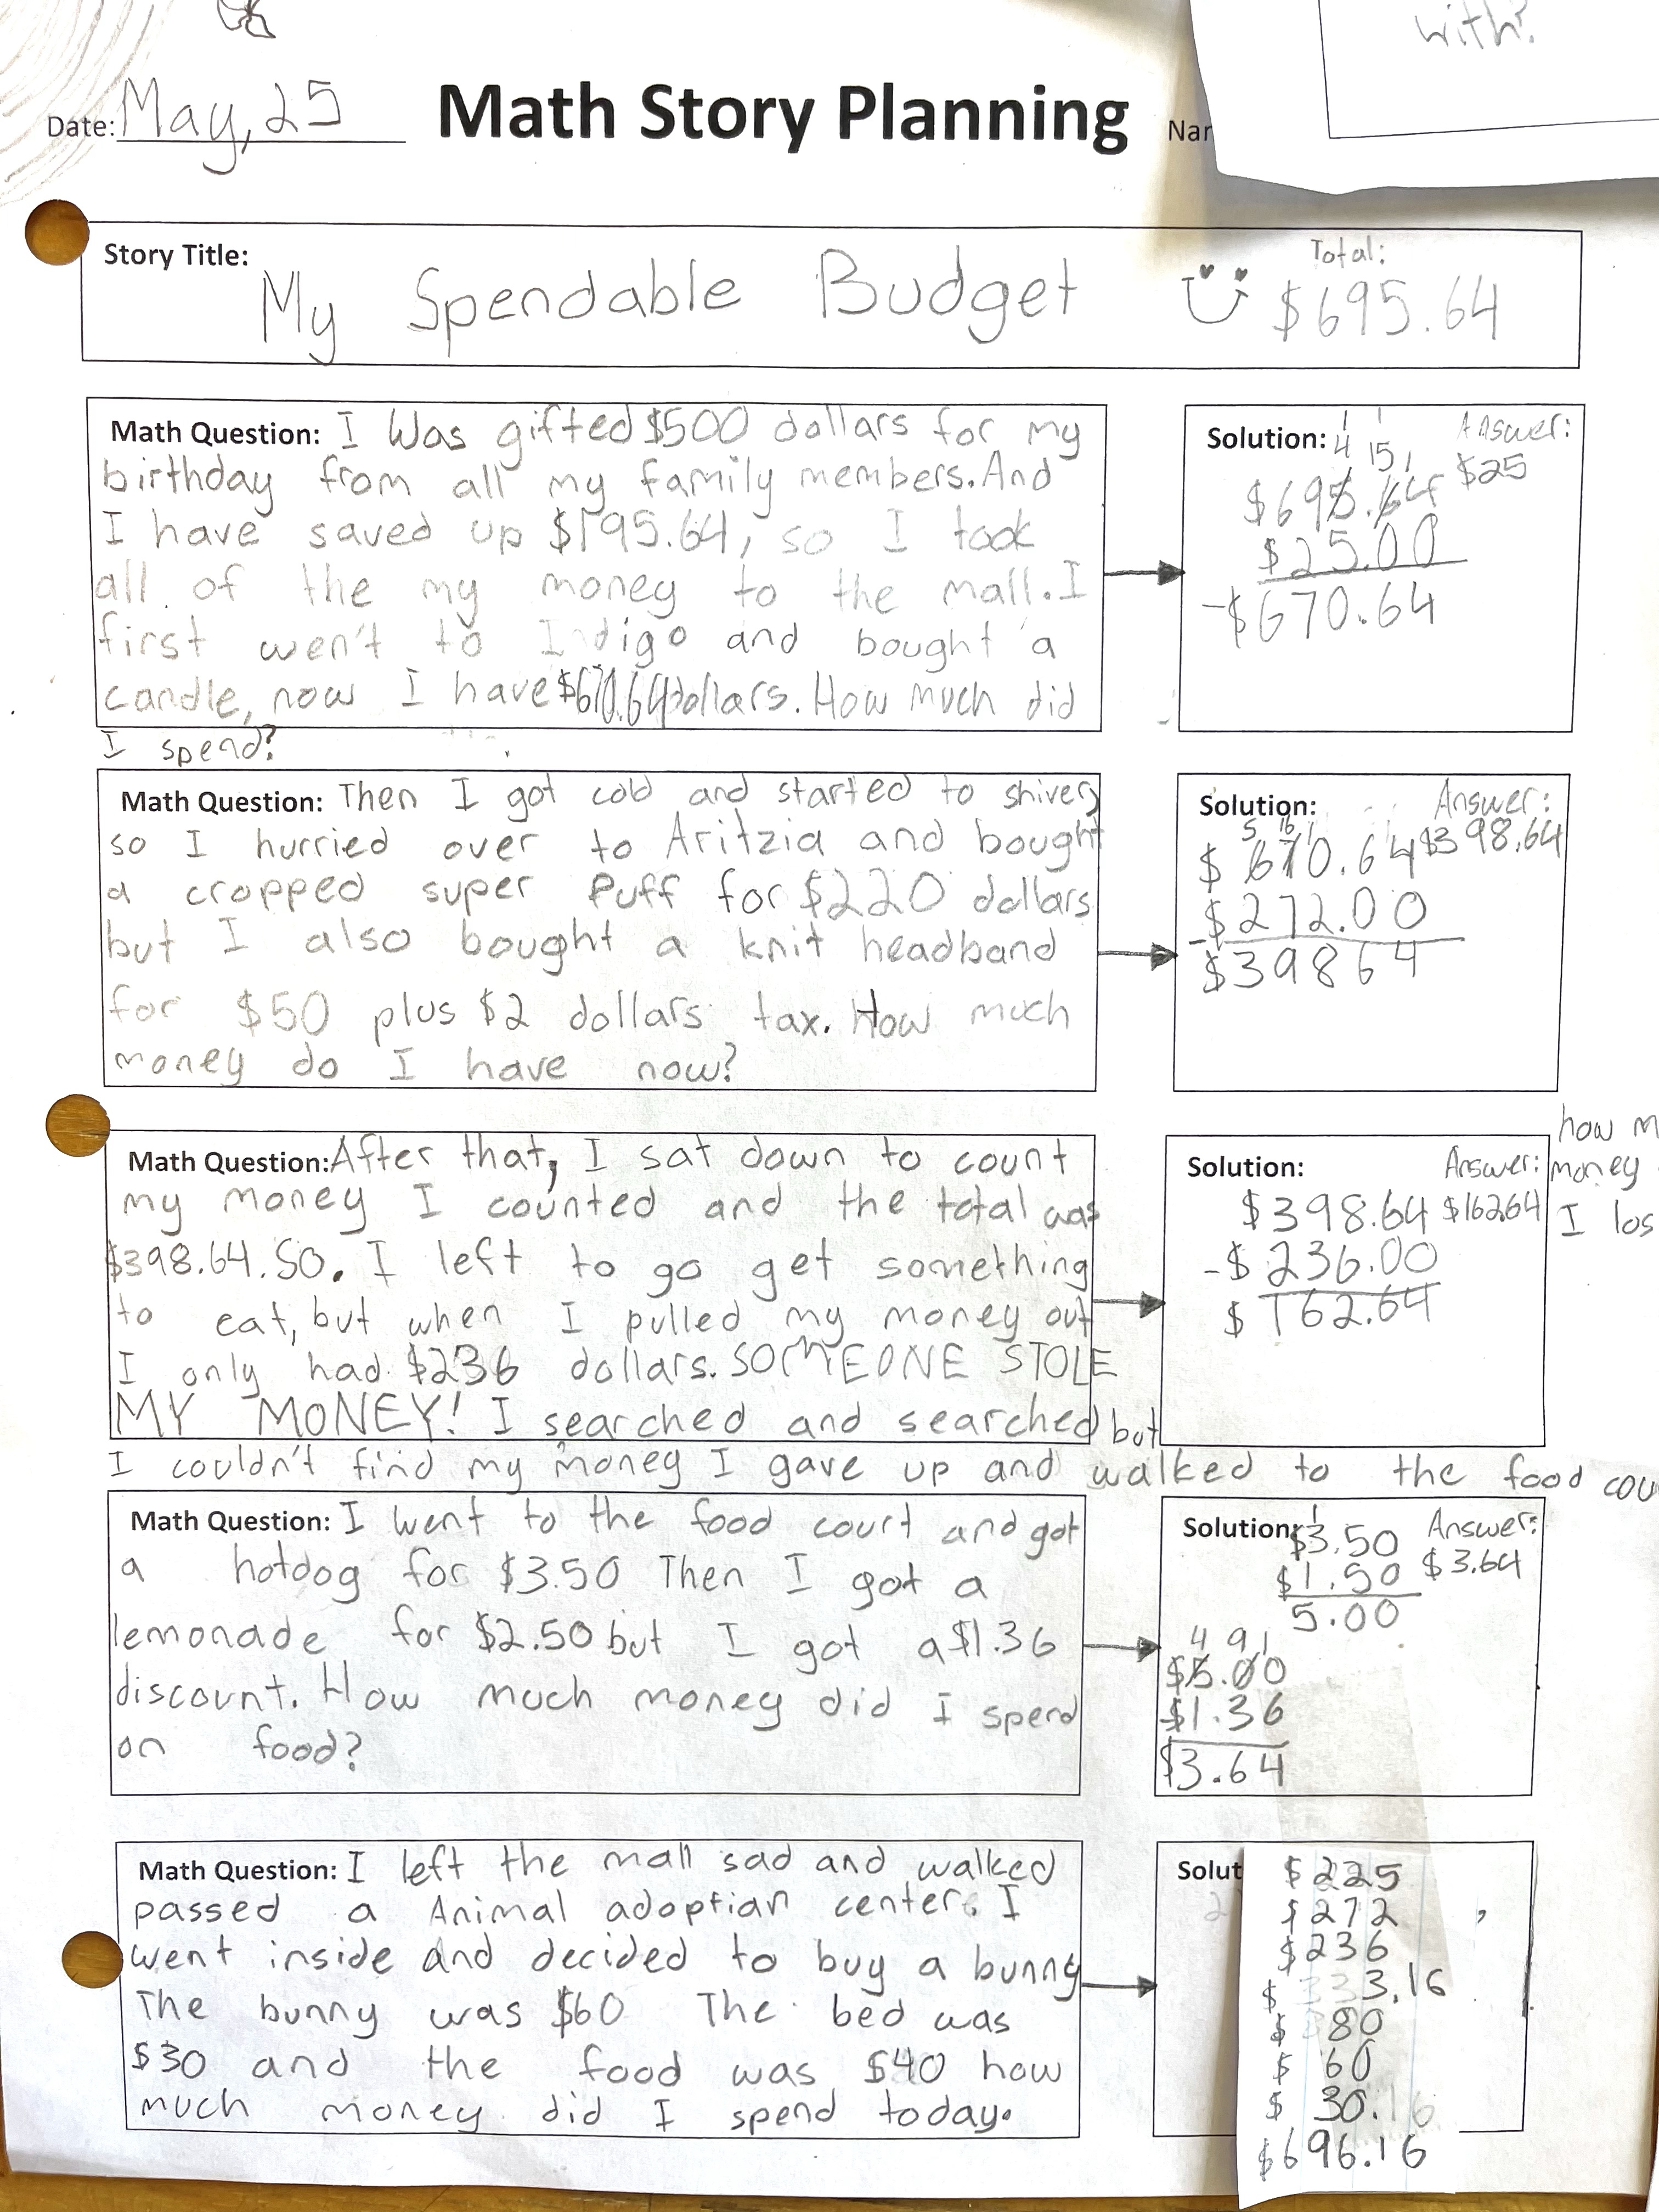 with?
Date: May, 25
Math Story Planning
Nar
Story Title:
My Spendable Budget
Total:
$695.64
Math Question: I Was gifted $500 dollars for my
birthday from all my family members. And
I have saved up $195.64, so I took
all of the my money to the mall. I
first wen't to Indigo and bought a
candle, now I have $670.64 dollars. How much did
I spend?
Solution:
Answer:
$25
4 15 1
$695.64
$25.00
-$670.64
Math Question: Then I got cold and started to shiver,
so I hurried over to Aritzia and bought
a cropped super Puff for $220 dollars
but I also bought a knit headband
for $50 plus $2 dollars tax. How much
money do I have now?
Solution:
Answer:
$398.64
5 16 1
$670.64
-$272.00
$39864
Math Question: After that, I sat down to count
my money I counted and the total was
$398.64. SO. I left to go get something
to eat, but when I pulled my money out
I only had $236 dollars. SOMEONE STOLE
MY MONEY! I searched and searched but
I couldn't find my money I gave up and walked to the food cou
how m
money
I los
Solution:
Answer:
$162.64
$398.64
-$236.00
$162.64
Math Question: I went to the food court and got
a hotdog for $3.50 Then I got a
lemonade for $2.50 but I got a $1.36
discount. How much money did I spend
on food?
Solution:
Answer:
$3.64
1
$3.50
$1.50
5.00
4 9 1
$5.00
-$1.36
$3.64
Math Question: I left the mall sad and walked
passed a Animal adoption center. I
went inside and decided to buy a bunny
The bunny was $60 The bed was
$30 and the food was $40 how
much money did I spend today.
Solut
$225
$272
$236
$333.16
$80
$60
$30.16
$696.16